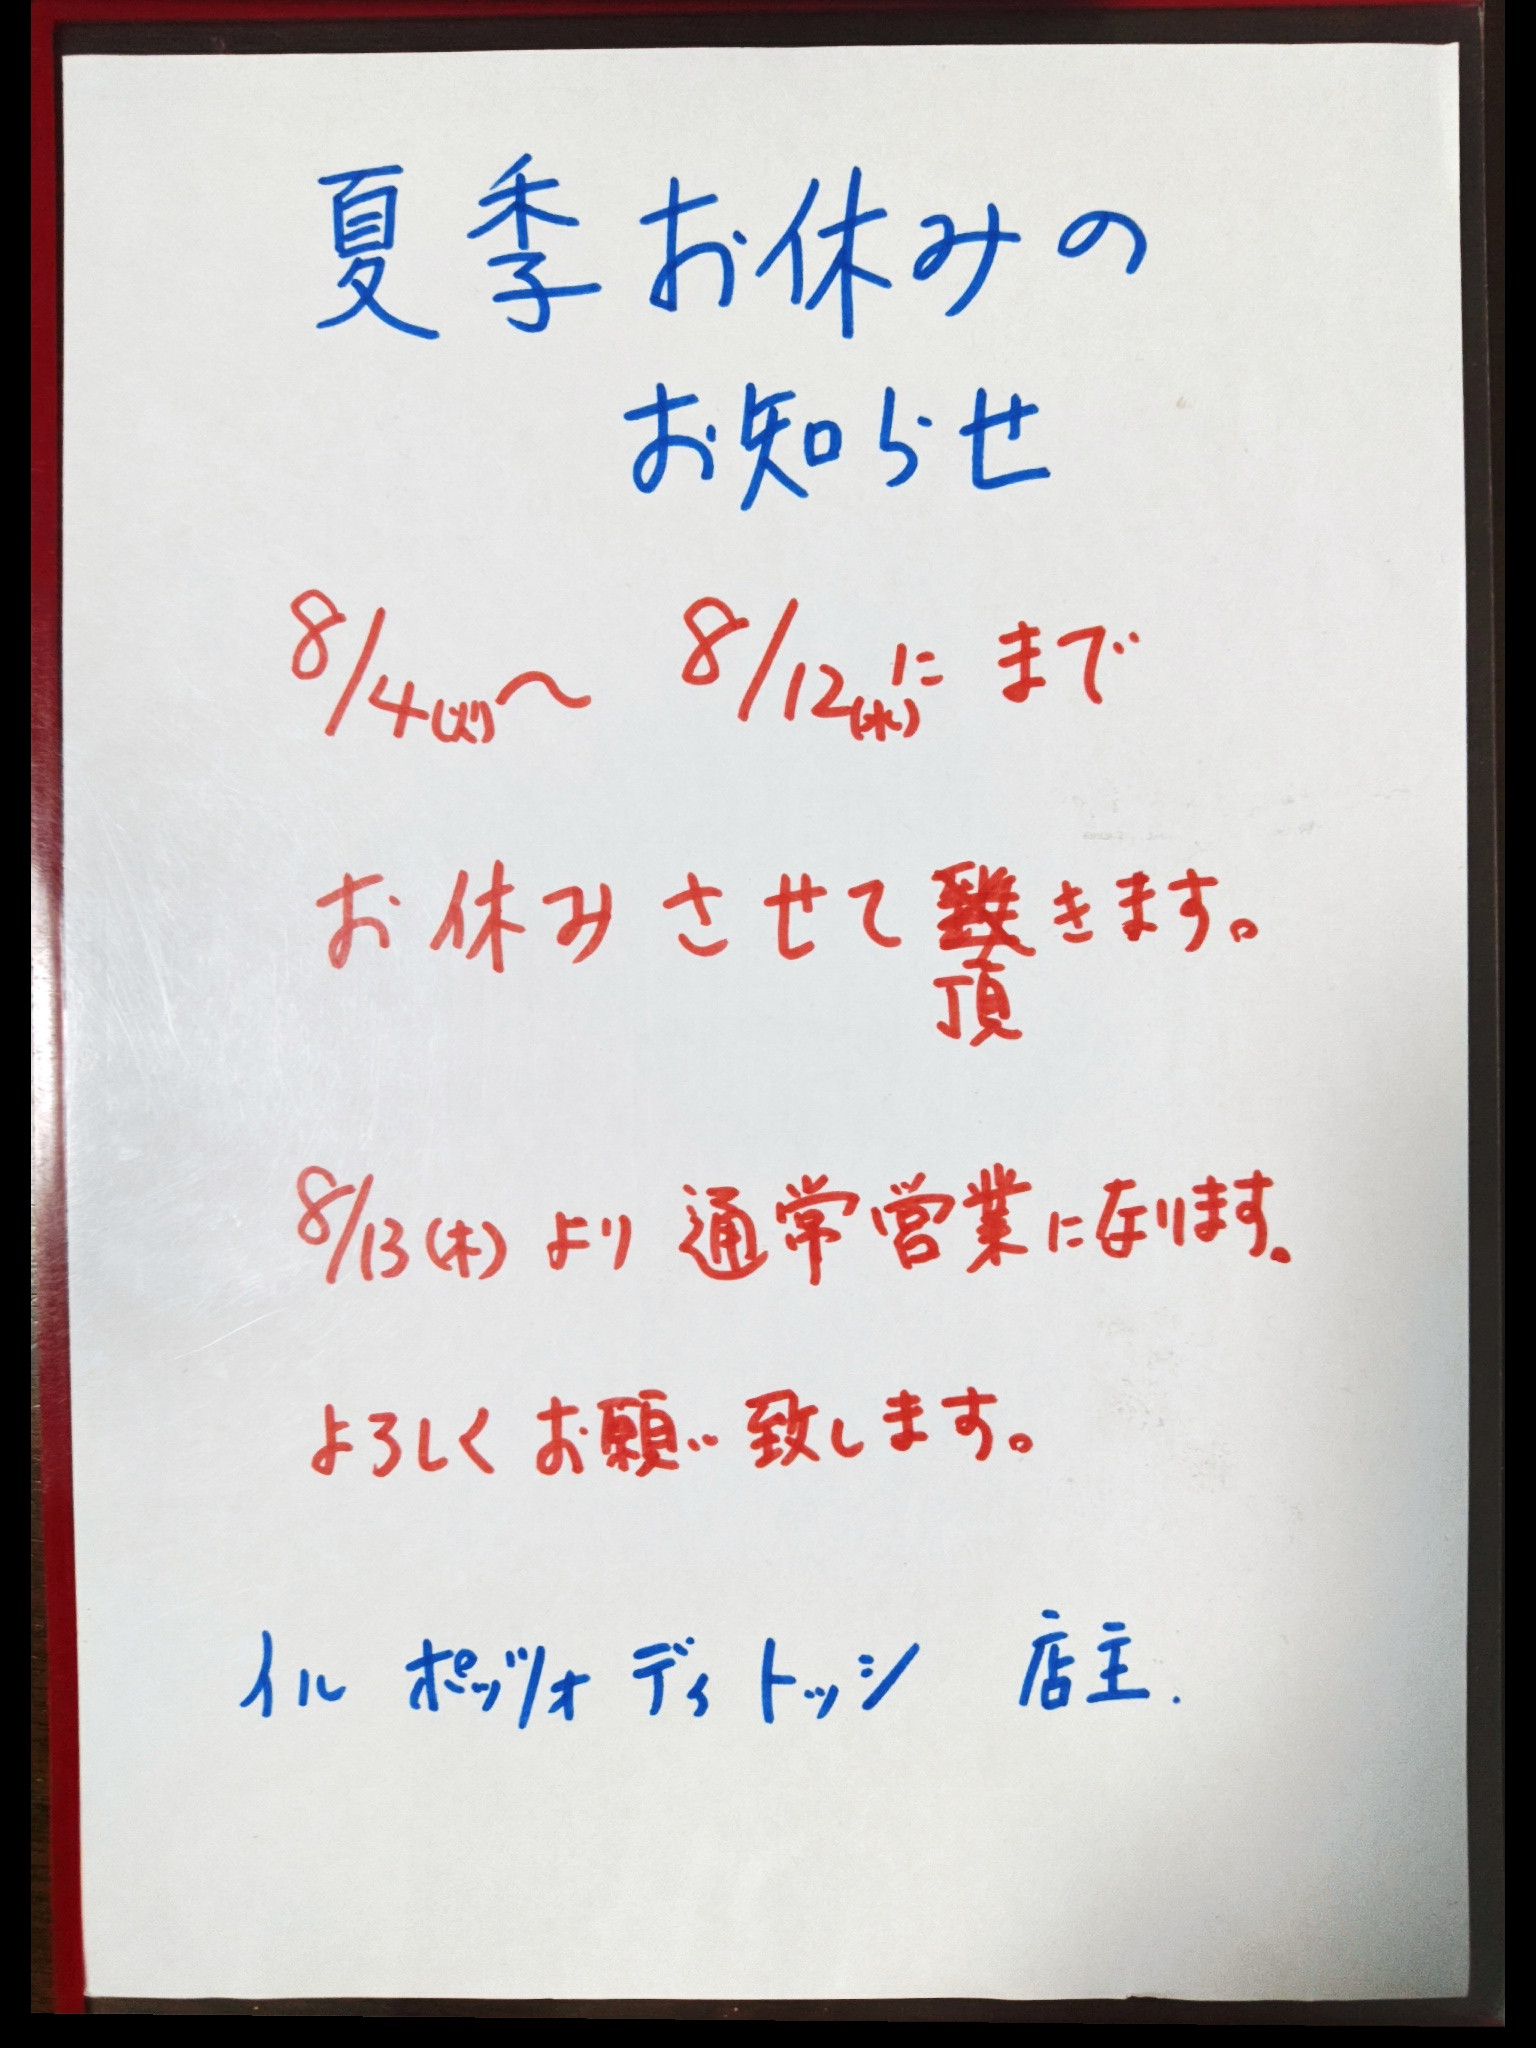 夏季お休みの
お知らせ
8/4(火)〜 8/12(水)に まで
お休みさせて頂きます。
8/13(木)より通常営業になります。
よろしくお願い致します。
イル ポッツォ ディ トッシ 店主.